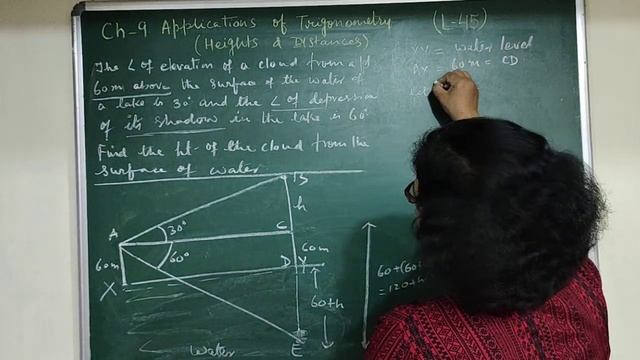 Ch-9 Applications of Trigonometry (L-45)
(Heights & Distances)
The ∠ of elevation of a cloud from a pt
60m above the surface of the water of
a lake is 30° and the ∠ of depression
of its shadow in the lake is 60°
Find the ht of the cloud from the
surface of water
XY = water level
AX = 60m = CD
Let
B
h
A
30°
C
60°
60m
60m
X
D
Y
60+h
60+(60
=120+h
water
E